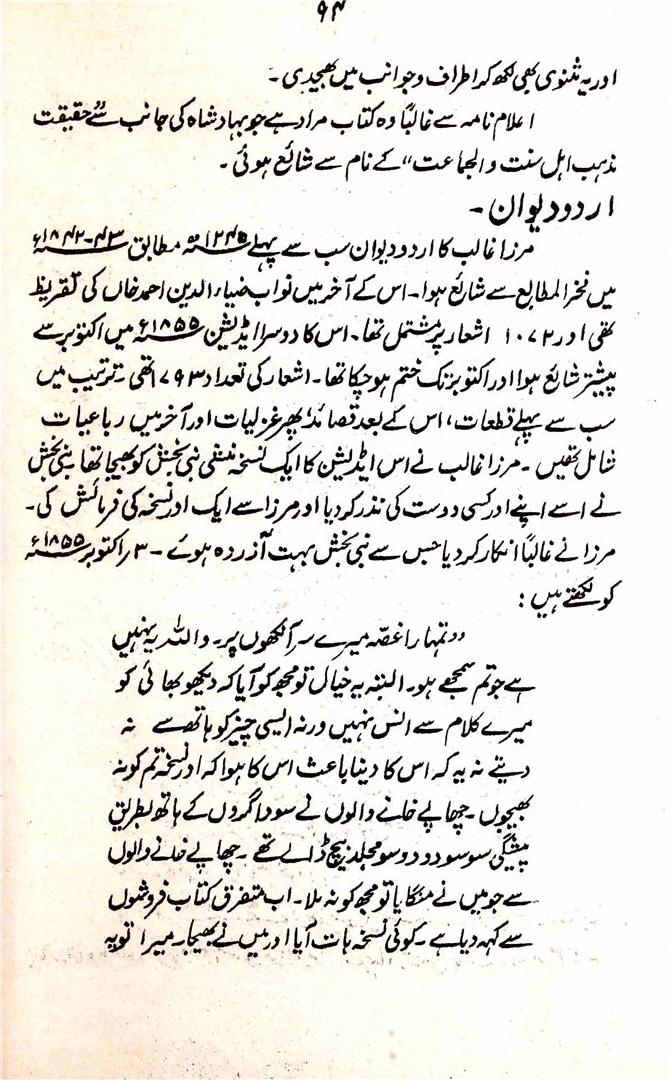 ۹۴
اور یہ مثنوی بھی لکھ کر اطراف و جوانب میں بھیجدی۔
اعلام نامہ سے غالباً وہ کتاب مراد ہے جو بہادر شاہ کی جانب سے "حقیقت
مذہب اہل سنت والجماعت" کے نام سے شائع ہوئی۔
اردو دیوان۔
مرزا غالب کا اردو دیوان سب سے پہلے مطابق ۴۳-۱۸۴۲ء
میں فخر المطابع سے شائع ہوا۔ اس کے آخر میں نواب ضیاء الدین احمد خاں کی تقریظ
تھی اور ۱۰۷۲ اشعار پر مشتمل تھا۔ اس کا دوسرا ایڈیشن ۱۸۵۵ء میں اکتوبر سے
پیشتر شائع ہوا اور اکتوبر تک ختم ہو چکا تھا۔ اشعار کی تعداد ۱۷۹۳ تھی۔ ترتیب میں
سب سے پہلے قطعات، اس کے بعد قصائد، پھر غزلیات اور آخر میں رباعیات
شامل تھیں۔ مرزا غالب نے اس ایڈیشن کا ایک نسخہ منشی نبی بخش کو بھیجا تھا نبی بخش
نے اسے اپنے اور کسی دوست کی نذر کر دیا اور مرزا سے ایک اور نسخہ کی فرمائش کی۔
مرزا نے غالباً انکار کر دیا جس سے نبی بخش بہت آزردہ ہوئے۔ ۳؍ اکتوبر ۱۸۵۵ء
کو لکھتے ہیں:
"تمہارا غصّہ میرے سر آنکھوں پر۔ واللہ یہ نہیں
ہے جو تم سمجھے ہو۔ البتہ یہ خیال تو مجھ کو آیا کہ دیکھو بھائی کو
میرے کلام سے انس نہیں ورنہ ایسی چیز کو ہاتھ سے نہ
دیتے نہ یہ کہ اس کا دینا باعث اس کا ہوا کہ اور نسخہ تم کو نہ
بھیجوں۔ چھاپے خانے والوں نے سوداگروں کے ہاتھ بطریق
پیشگی سو سو دو دو سو مجلد بیچ ڈالے تھے۔ چھاپے خانے والوں
سے جو میں نے منگایا تو مجھ کو نہ ملا۔ اب متفرق کتاب فروشوں
سے کہہ دیا ہے۔ کوئی نسخہ ہات آیا اور میں نے بھیجا۔ میرا تو یہ